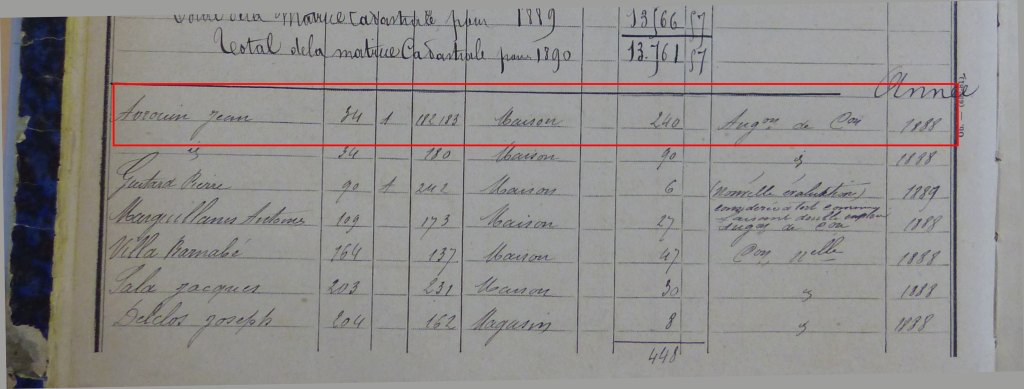 Total de la Matrice Cadastrale pour 1889 13566 57
Total de la matrice Cadastrale pour 1890 13.761 57
Année
Jean 34 1 182.183 Maison 240 Augon de Con 1888
id 34 180 Maison 90 id 1888
Guitard Pierre 90 1 242 Maison 6 (nouvelle évaluation) 1889
considéré comme
faisant double emploi
Marquillanes Antoine 109 173 Maison 27 Augon de Con 1888
Villa Barnabé 164 137 Maison 47 Con nelle 1888
Sala Jacques 203 231 Maison 30 id 1888
Delclos Joseph 204 162 Magasin 8 id 1888
448